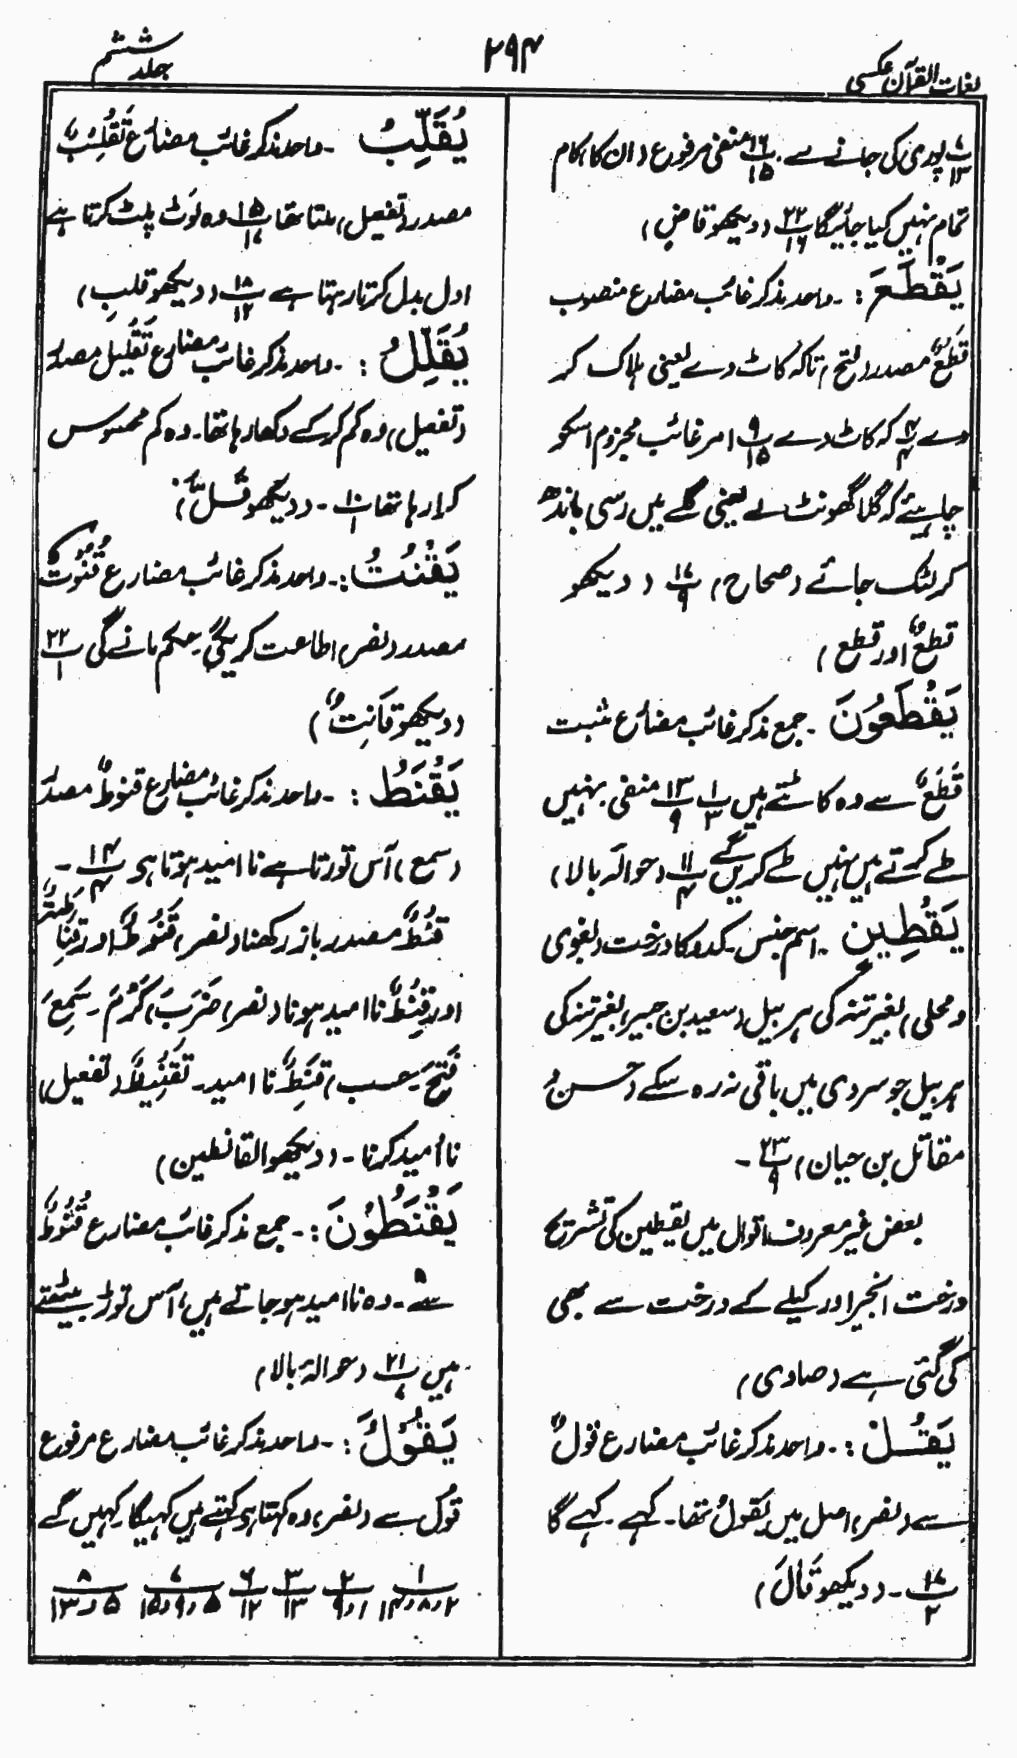 لغات القرآن عکسی
۲۹۴
جلد ششم
پ۷/۱۳ پوری کی جانے سے پ۱۶/۱۵ منفی مرفوع (ان کا کام
تمام نہیں کیا جائیگا پ۲۲/۱۶ (دیکھو قاضٍ)
یَقْطَعَ :۔ واحد مذکر غائب مضارع منصوب
قَطْعٌ مصدر (فتح) تاکہ کاٹ دے یعنی ہلاک کر
دے پ۴/۴ کہ کاٹ دے پ۹/۱۵ امر غائب مجزوم اسکو
چاہیئے کہ گلا گھونٹ لے یعنی گلے میں رسی باندھ
کر لٹک جائے (صحاح) پ۱۷/۹ (دیکھو
قطعٌ اور قطع)
یَقْطَعُوْنَ ۔ جمع مذکر غائب مضارع مثبت
قَطْعٌ سے وہ کاٹتے ہیں پ۱/۳ پ۱۳/۹ منفی نہیں
طے کرتے ہیں نہیں طے کریں گے پ۱۱/۴ (حوالہ بالا)
یَقْطِیْنٍ ۔ اسم جنس۔ کدو کا درخت (بغوی
و محلی) بغیر تنہ کی ہر بیل (سعید بن جبیر) بغیر تنہ کی
ہر بیل جو سردی میں باقی نہ رہ سکے (حسنؒ و
مقاتل بن حیان) پ۲۳/۹ ۔
بعض غیر معروف اقوال میں یقطین کی تشریح
درخت انجیر اور کیلے کے درخت سے بھی
کی گئی ہے (صاوی)
یَقُلْ :۔ واحد مذکر غائب مضارع قولٌ
سے (نصر) اصل میں یَقُولُ تھا۔ کہے ۔ کہے گا
پ۱۷/۲ ۔ (دیکھو قَالَ)
یُقَلِّبُ ۔ واحد مذکر غائب مضارع تَقْلِیْبٌ
مصدر (تفعیل) ملتا تھا پ۱۵/۱۷ وہ لَوٹ پلٹ کرتا ہے
ادل بدل کرتا رہتا ہے پ۱۸/۱۲ (دیکھو قلب)
یُقَلِّلُ :۔ واحد مذکر غائب مضارع تَقْلِیل مصدر
(تفعیل) وہ کم کر کے دکھا رہا تھا۔ وہ کم محسوس
کرا رہا تھا پ۱۰/۱ ۔ (دیکھو قَلَّ)
یَقْنُتْ :۔ واحد مذکر غائب مضارع قُنُوْتٌ
مصدر (نصر) اطاعت کریگی۔ حکم مانے گی پ۲۲/۱
(دیکھو قَانِتٌ)
یَقْنَطُ :۔ واحد مذکر غائب مضارع قنوطٌ مصدر
(سمع) آس توڑتا ہے نا امید ہوتا ہی پ۱۴/۴ ۔
قَنْطٌ مصدر باز رکھنا (نصر) قَنُوْطٌ اور
اور قَنِطٌ نا امید ہونا (نصر، ضَرَبَ، کَرُمَ ۔ سَمِعَ
فَتَحَ۔ حسب) قَنَطٌ نا امید۔ تَقْنِیْطٌ (تفعیل)
نا اُمید کرنا ۔ (دیکھو القانطین)
یَقْنَطُوْنَ :۔ جمع مذکر غائب مضارع قُنُوْطٌ
سے ۔ وہ نا امید ہو جاتے ہیں، آس توڑ بیٹھتے
ہیں پ۲۱/۷ (حوالۂ بالا)
یَقُوْلُ :۔ واحد مذکر غائب مضارع مرفوع
قَوْلٌ سے (نصر) وہ کہتا ہی کہتے ہیں کہیگا کہیں گے
۱/۲و۸و۱۴ ۲/۱و۹ ۳/۱۳ ۶/۱۲ ۷/۵و۹و۱۵ ۸/۵و۱۳